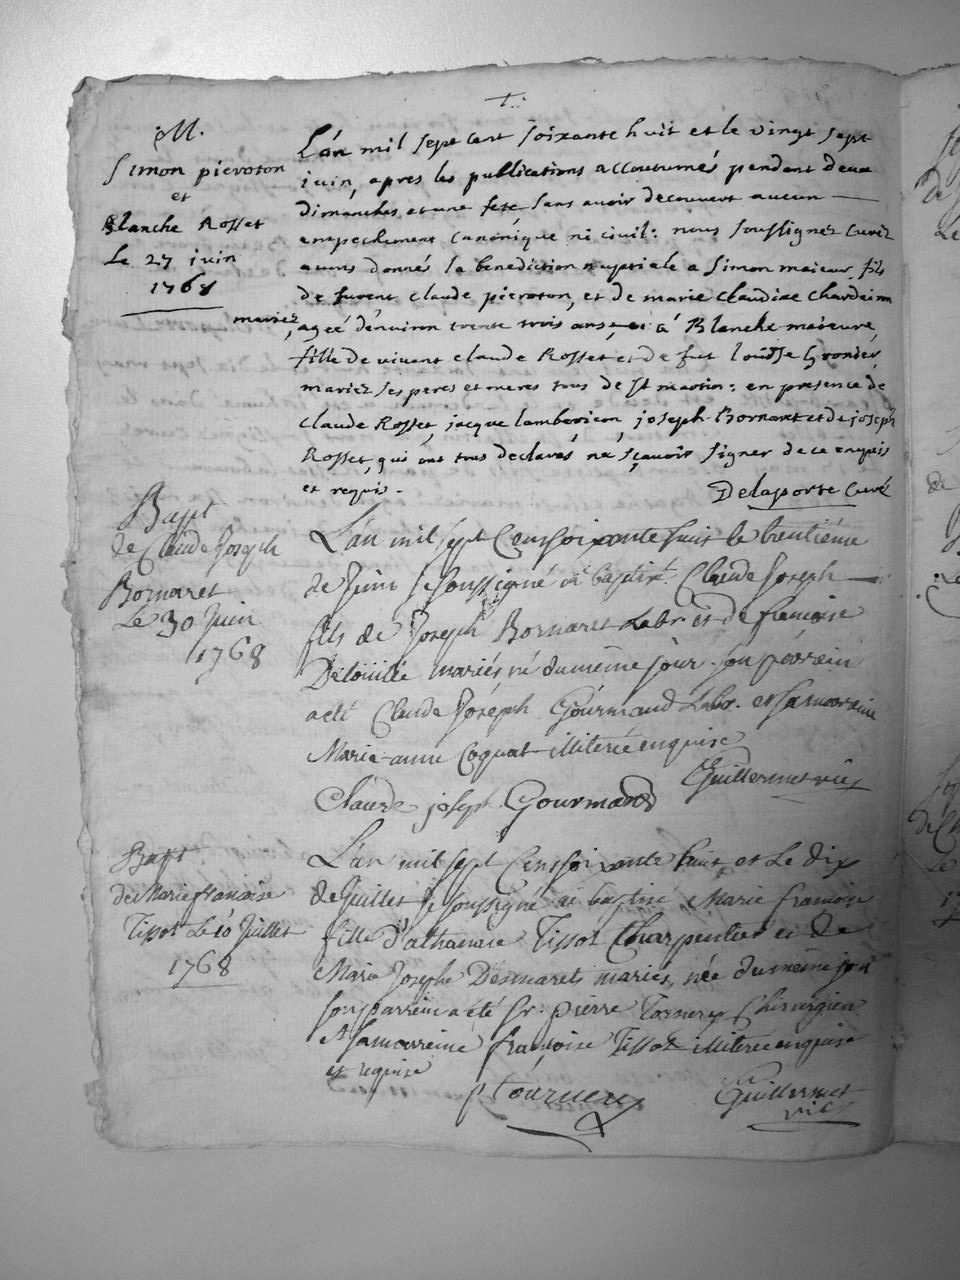 M.
Simon pieroton
et
Blanche Rosset
Le 27 juin
1768
L'an mil sept cent soixante huit et le vingt sept
juin, apres les publications accoutumés pendant deux
dimanches et une fete sans avoir decouvert aucun
empechement canonique ni civil: nous soussignez curez
avons donnés la benediction nuptiale a Simon maieur, fils
de furent claude pieroton, et de marie claudine chardeinn
mariez, ageé d'environ trente trois ans, et a Blanche maieure,
fille de vivent claude Rosset et de fut loüsse
mariez ses peres et meres tous de st martin: en presence de
claude Rosset, jacque lamberion, joseph Bornaret et de joseph
Rosset, qui ont tous declarés ne sçavoir signer de ce enquis
et requis.
Delaporte Curé
Bapt
de Claude Joseph
Bornaret
Le 30 Juin
1768
L'an mil sept Cens soixante huit le trentiéme
de Juin je soussigné ai baptisé Claude Joseph
fils de Joseph Bornaret Labr et de francoise
Detouillé mariés né du même jour. son parrein
a eté Claude Joseph Gourmand Labr. et sa marreine
Marie-anne Coquat illiterée enquise
Guillermet vic
Claude joseph Gourmand
Bapt
de Marie francoise
Tissot Le 10 Juillet
1768
L'an mil sept Cens soixante huit et Le dix
de Juillet je soussigné ai baptisé Marie francoise
fille d'athanase Tissot Charpentier et de
Marie Joseph Desmarets mariés, née du même jour
son parrein a été Sr. pierre Tornery Chirurgien
et sa marreine françoise Tissot illiterée enquise
et requise
Guillermet
vic